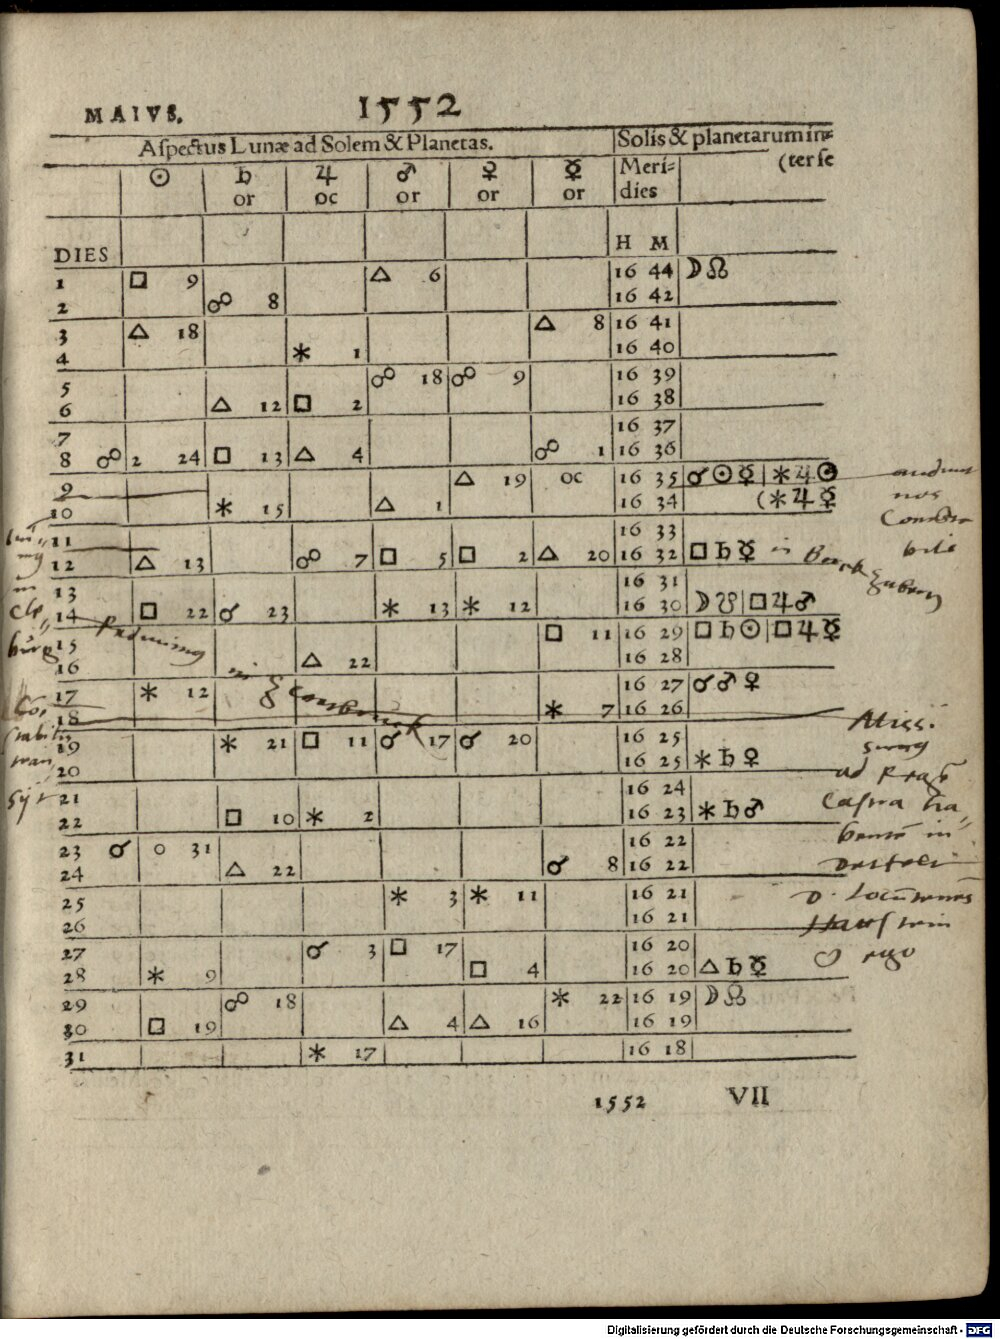 MAIVS. 1552
Aſpectus Lunæ ad Solem & Planetas. Solis & planetarum in=
(ter ſe
☉ ♄ ♃ ♂ ♀ ☿ Meri=
or oc or or or dies
DIES H M
1 □ 9 △ 6 16 44 ☽☊
2 ☍ 8 16 42
3 △ 18 △ 8 16 41
4 ✶ 1 16 40
5 ☍ 18 ☍ 9 16 39
6 △ 12 □ 2 16 38
7 16 37
8 ☍ 2 24 □ 13 △ 4 ☍ 1 16 36
9 △ 19 oc 16 35 ☌☉☿|✶♃☉
10 ✶ 15 △ 1 16 34 (✶♃☿
nos
11 16 33
12 △ 13 ☍ 7 □ 5 □ 2 △ 20 16 32 □♄☿ in
13 16 31
14 □ 22 ☌ 23 ✶ 13 ✶ 12 16 30 ☽☋|□♃♂
15 □ 11 16 29 □♄☉|□♃☿
16 △ 22 16 28
in
17 ✶ 12 16 27 ☌♂♀
18 ✶ 7 16 26
19 ✶ 21 □ 11 ☌ 17 ☌ 20 16 25
20 16 25 ✶♄♀
ad
21 16 24
22 □ 10 ✶ 2 16 23 ✶♄♂
23 ☌ 0 31 16 22
24 △ 22 ☌ 8 16 22
25 ✶ 3 ✶ 11 16 21
26 16 21
27 ☌ 3 □ 17 16 20
28 ✶ 9 □ 4 16 20 △♄☿
29 ☍ 18 ✶ 22 16 19 ☽☊
30 □ 19 △ 4 △ 16 16 19
31 ✶ 17 16 18
1552 VII
Digitalisierung gefördert durch die Deutsche Forschungsgemeinschaft - DFG